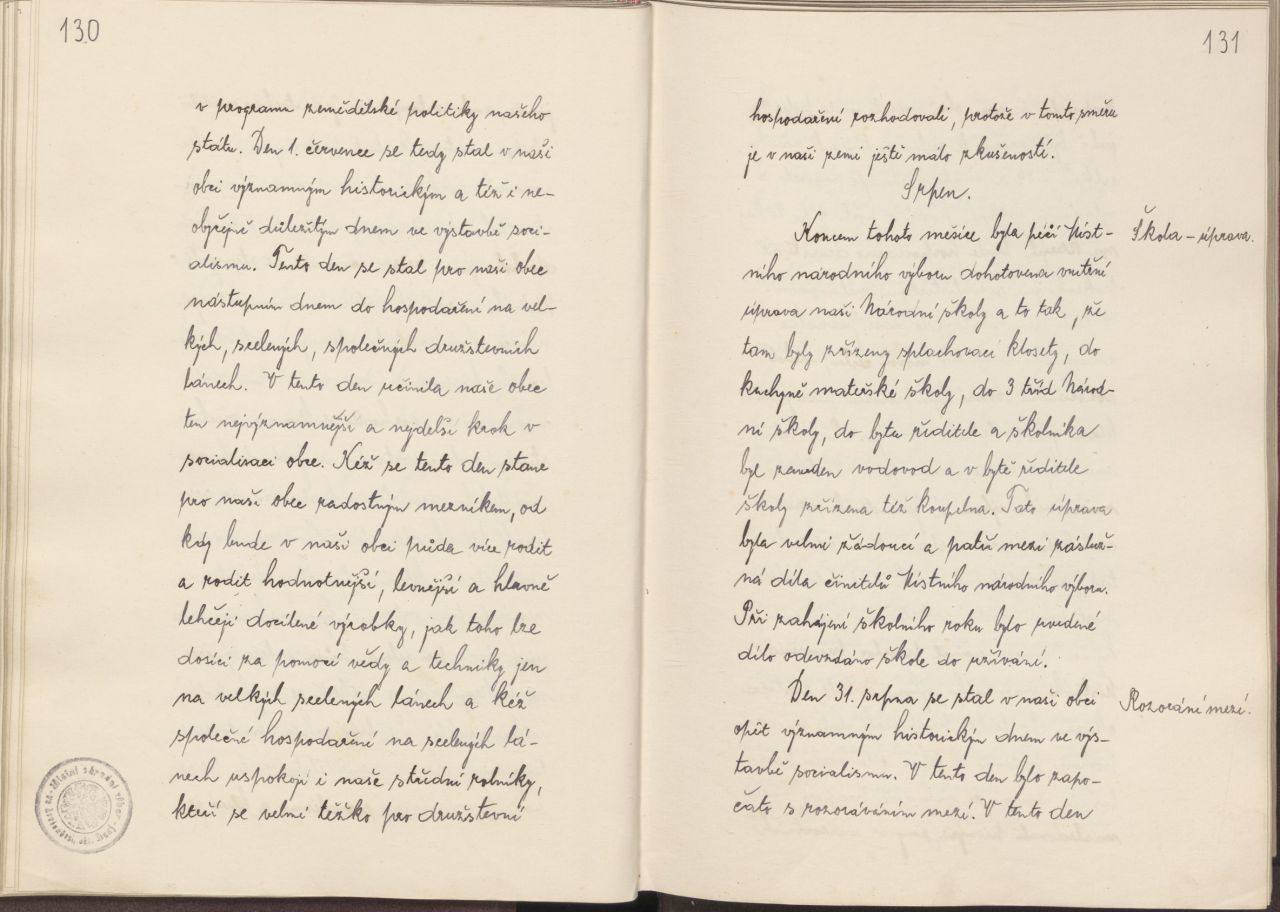 130
v programu zemědělské politiky našeho
státu. Den 1. července se tedy stal v naší
obci významným historickým a též i ne-
obyčejně důležitým dnem ve výstavbě soci-
alismu. Tento den se stal pro naši obec
nástupním dnem do hospodaření na vel-
kých, scelených, společných družstevních
lánech. V tento den učinila naše obec
ten nejvýznamnější a nejdelší krok v
socialisaci obce. Kéž se tento den stane
pro naši obec radostným mezníkem, od
kdy bude v naší obci půda více rodit
a rodit hodnotnější, levnější a hlavně
lehčeji docílené výrobky, jak toho lze
dosíci za pomoci vědy a techniky jen
na velkých scelených lánech a kéž
společné hospodaření na scelených lá-
nech uspokojí i naše střední rolníky,
kteří se velmi těžko pro družstevní
131
hospodaření rozhodovali, protože v tomto směru
je v naší zemi ještě málo zkušeností.
Srpen.
Koncem tohoto měsíce byla péčí Míst-
Škola – úprava.
ního národního výboru dohotovena vnitřní
úprava naší Národní školy a to tak, že
tam byly zřízeny splachovací klosety, do
kuchyně mateřské školy, do 3 tříd Národ-
ní školy, do bytu ředitele a školníka
byl zaveden vodovod a v bytě ředitele
školy zřízena též koupelna. Tato úprava
byla velmi žádoucí a patří mezi záslu​ž-
ná díla činitelů Místního národního výboru.
Při zahájení školního roku bylo uvedené
dílo odevzdáno škole do užívání.
Den 31. srpna se stal v naší obci
Rozorání mezí.
opět významným historickým dnem ve výs-
tavbě socialismu. V tento den bylo zapo-
čato s rozoráváním mezí. V tento den